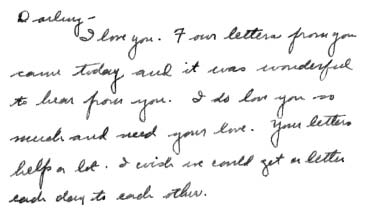 Darling -
I love you. Four letters from you
came today and it was wonderful
to hear from you. I do love you so
much and need your love. Your letters
help a lot. I wish we could get a letter
each day to each other.